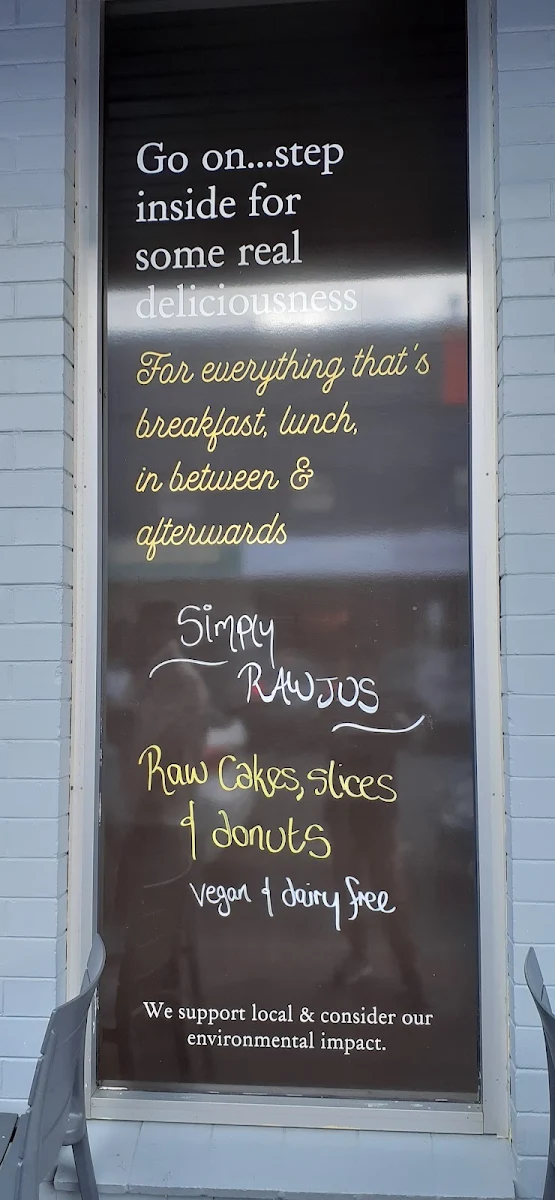 Go on...step
inside for
some real
deliciousness
For everything that's
breakfast, lunch,
in between &
afterwards
Simply
RAWJUS
Raw Cakes, slices
& donuts
vegan & dairy free
We support local & consider our
environmental impact.